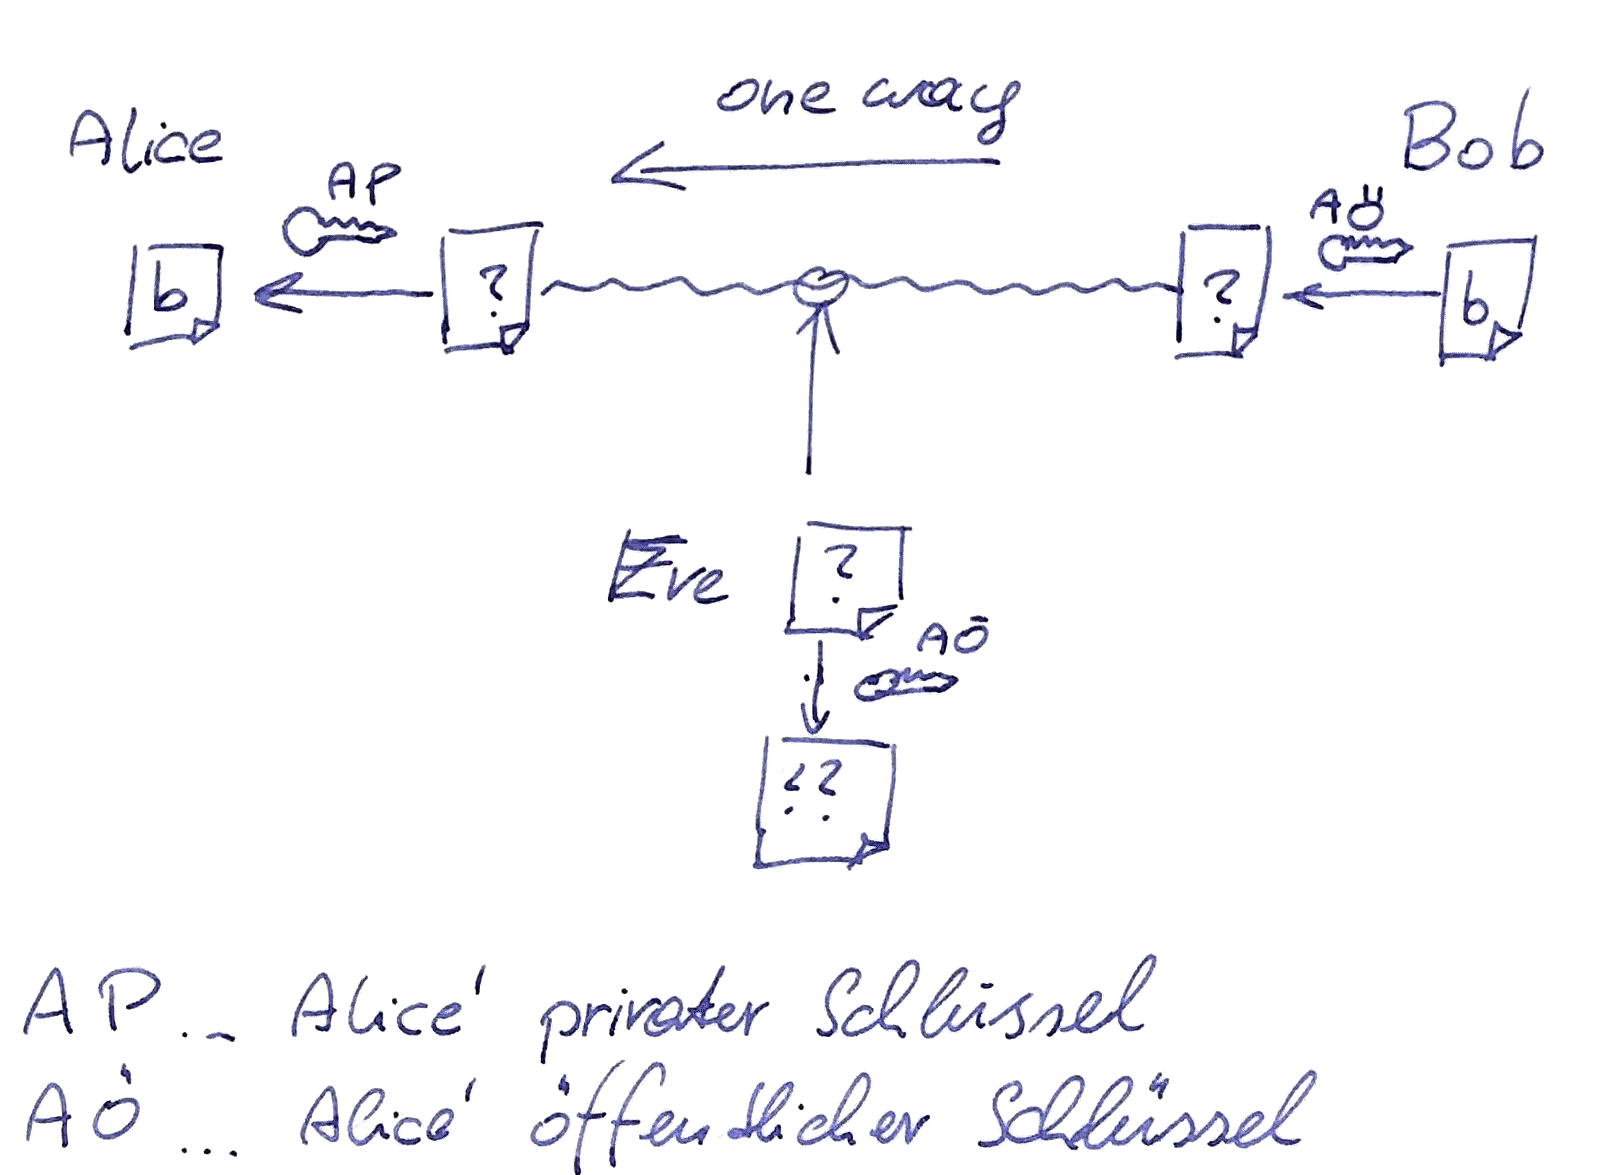 one way
Alice
Bob
AP
AÖ
b
?
?
b
Eve
?
AÖ
??
AP... Alice' privater Schlüssel
AÖ... Alice' öffentlicher Schlüssel